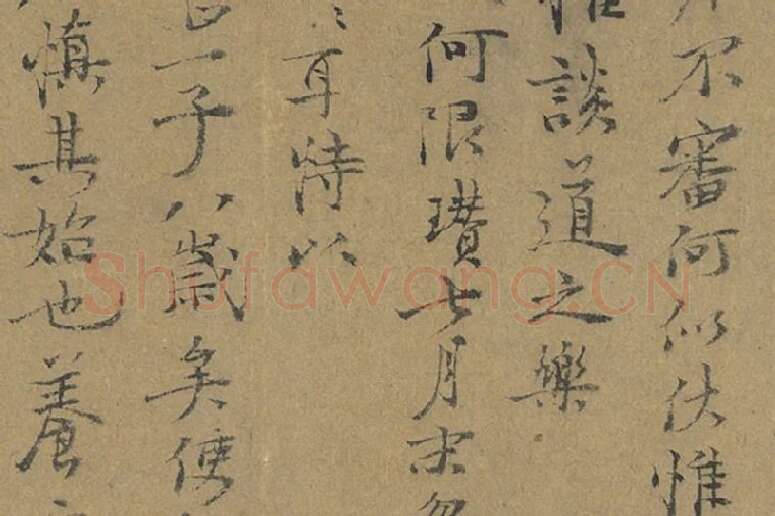 不審何似伏惟
談道之樂
何限瓚七月末
耳特以
一子八歲矣使
慎其始也養
Shufawang.CN